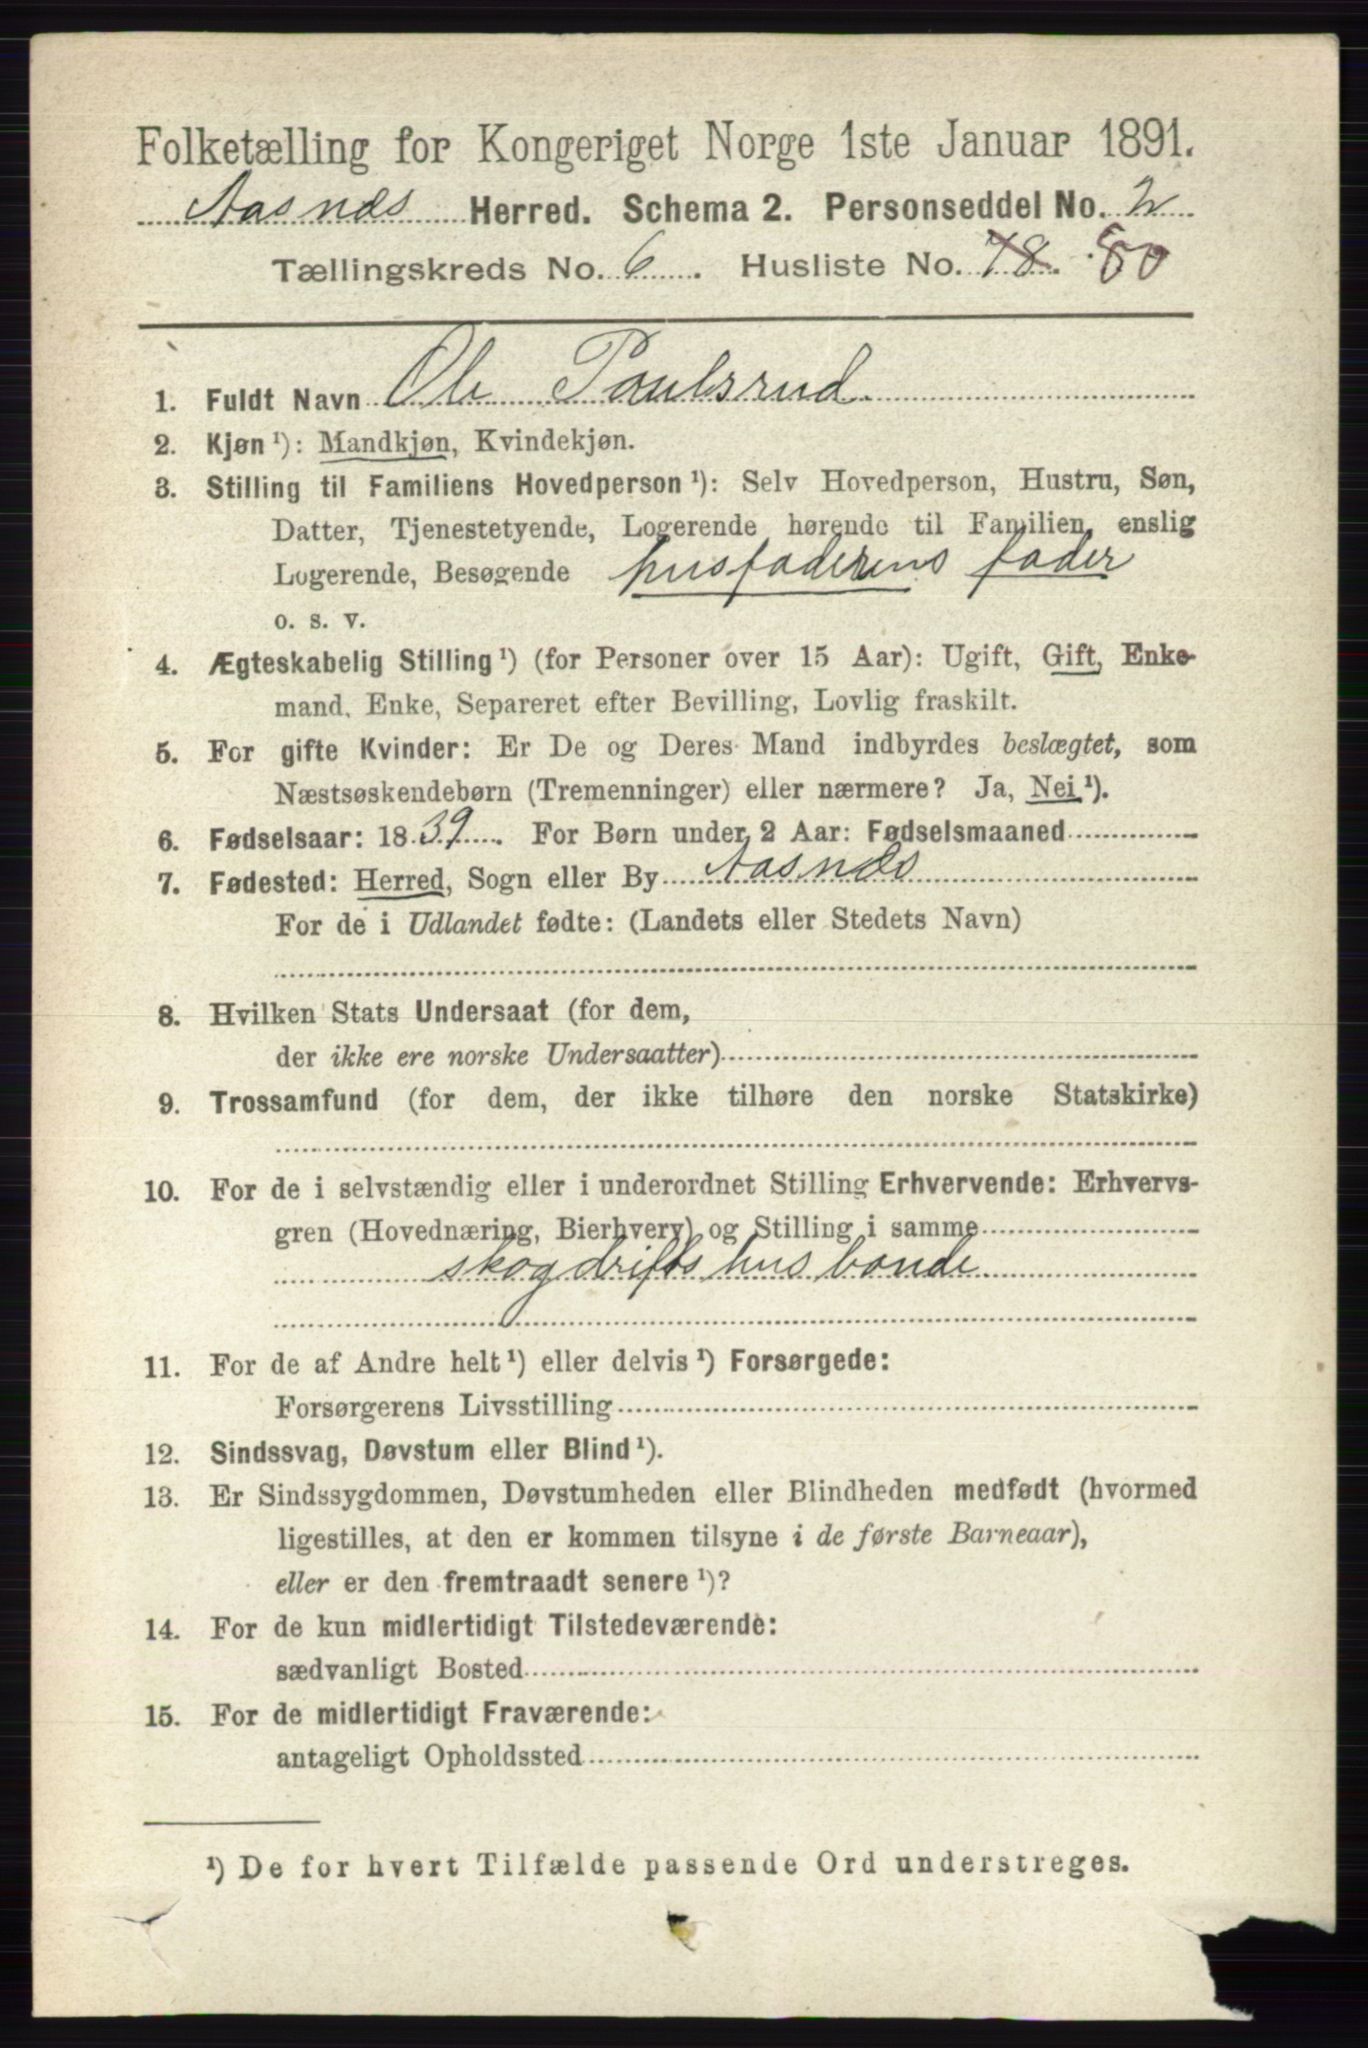 Folketælling for Kongeriget Norge 1ste Januar 1891.
Aasnes Herred. Schema 2. Personseddel No. 2
Tællingskreds No. 6. Husliste No. 78. 80
1. Fuldt Navn Ole Paulsrud
2. Kjøn ¹): Mandkjøn, Kvindekjøn.
3. Stilling til Familiens Hovedperson ¹): Selv Hovedperson, Hustru, Søn,
Datter, Tjenestetyende, Logerende hørende til Familien, enslig
Logerende, Besøgende husfaderens fader
o. s. v.
4. Ægteskabelig Stilling ¹) (for Personer over 15 Aar): Ugift, Gift, Enke-
mand, Enke, Separeret efter Bevilling, Lovlig fraskilt.
5. For gifte Kvinder: Er De og Deres Mand indbyrdes beslægtet, som
Næstsøskendebørn (Tremenninger) eller nærmere? Ja, Nei ¹).
6. Fødselsaar: 1839. For Børn under 2 Aar: Fødselsmaaned
7. Fødested: Herred, Sogn eller By Aasnes
For de i Udlandet fødte: (Landets eller Stedets Navn)
8. Hvilken Stats Undersaat (for dem,
der ikke ere norske Undersaatter)
9. Trossamfund (for dem, der ikke tilhøre den norske Statskirke)
10. For de i selvstændig eller i underordnet Stilling Erhvervende: Erhvervs-
gren (Hovednæring, Bierhverv) og Stilling i samme
skogdrifts husbonde
11. For de af Andre helt ¹) eller delvis ¹) Forsørgede:
Forsørgerens Livsstilling
12. Sindssvag, Døvstum eller Blind ¹).
13. Er Sindssygdommen, Døvstumheden eller Blindheden medfødt (hvormed
ligestilles, at den er kommen tilsyne i de første Barneaar),
eller er den fremtraadt senere ¹)?
14. For de kun midlertidigt Tilstedeværende:
sædvanligt Bosted
15. For de midlertidigt Fraværende:
antageligt Opholdssted
¹) De for hvert Tilfælde passende Ord understreges.